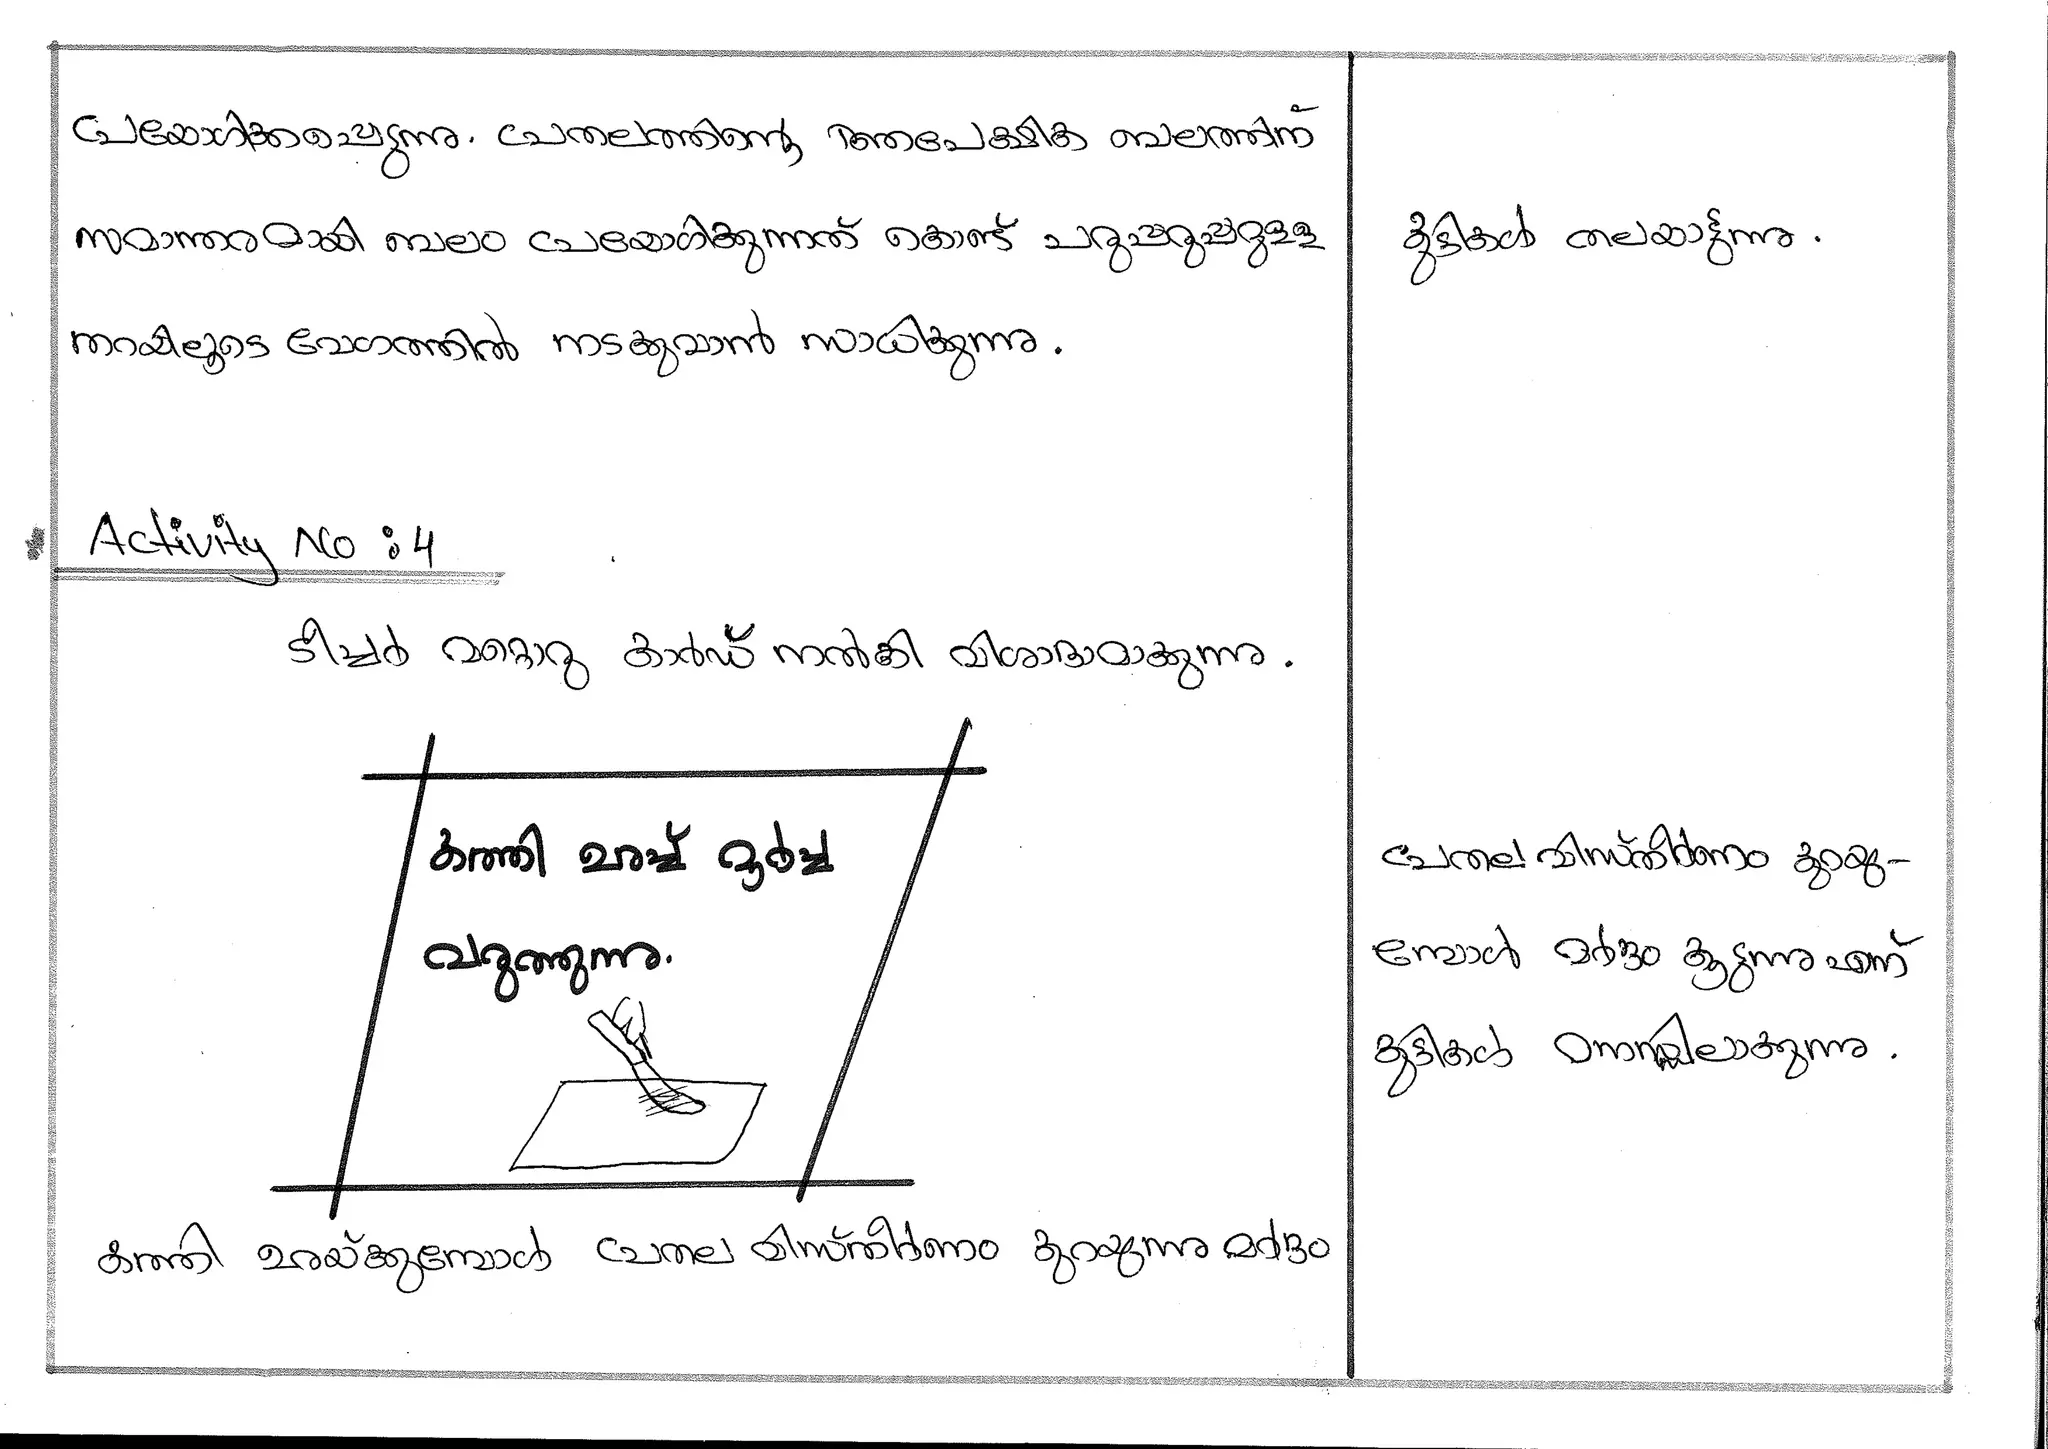 പ്രയോഗിക്കപ്പെടുന്നു. പ്രതലത്തിന്റെ ആപേക്ഷിക ബലത്തിന്
സമാന്തരമായി ബലം പ്രയോഗിക്കുന്നത് കൊണ്ട് പരുപരുപ്പുള്ള
തറയിലൂടെ വേഗത്തിൽ നടക്കുവാൻ സാധിക്കുന്നു.
കുട്ടികൾ തലയാട്ടുന്നു.
Activity No : 4
ടീച്ചർ മറ്റൊരു കാർഡ് നൽകി വിശദാമാക്കുന്നു.
കത്തി ഉരച്ച് മൂർച്ച
വരുത്തുന്നു.
കത്തി ഉരയ്ക്കുമ്പോൾ പ്രതല വിസ്തീർണം കുറയുന്നു മർദ്ദം
പ്രതല വിസ്തീർണം കുറയു-
മ്പോൾ മർദ്ദം കൂടുന്നു എന്ന്
കുട്ടികൾ മനസ്സിലാക്കുന്നു.